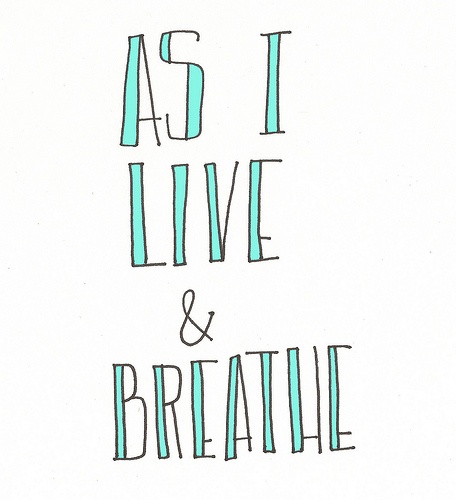 AS I
LIVE
&
BREATHE